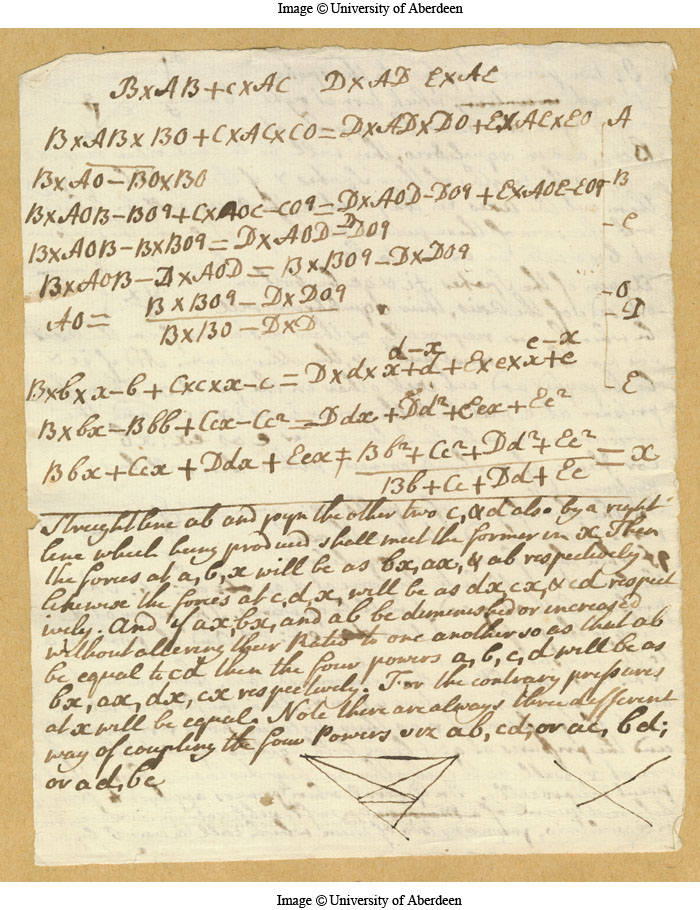 Image © University of Aberdeen
B×AB+C×AC D×AD E×AE
B×AB×BO+C×AC×CO=D×AD×DO+E×AE×EO
A
B×AO−BO×BO
B
B×AOB−BOq+C×AOC−COq=D×AOD−DOq+E×AOE−EOq
C
B×AOB−B×BOq=D×AOD−DOq
B×AOB−D×AOD=B×BOq−D×DOq
O
D
AO= B×BOq−D×DOq
B×BO−D×D
d−x e−x
B×b×x−b+C×c×x−c=D×d×x+d+E×e×x+e
E
B×bx−Bbb+Ccx−Cc²=Ddx+Dd²+Eex+Ee²
Bbx+Ccx+Ddx+Eex= Bb²+Cc²+Dd²+Ee² =x
Bb+Cc+Dd+Ee
Streight line ab and joyn the other two c, & d also by a right
line which being produced shall meet the former in x Then
the forces at a, b, x will be as bx, ax, & ab respectively
likewise the forces at c, d, x, will be as dx, cx, & cd respect
ively. And if ax, bx, and ab be diminished or increased
without altering their Ratio to one another so as that ab
be equal to cd then the four powers a, b, c, d will be as
bx, ax, dx, cx respectively. For the contrary pressures
at x will be equal. Note there are always three different
way of coupling the four Powers viz ab, cd; or ac, bd;
or ad, bc
Image © University of Aberdeen